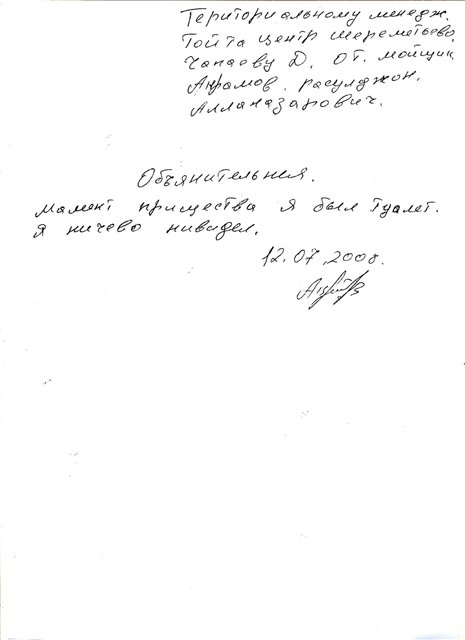 Териториальному менедж.
Тойта центр Шереметьево.
Чапаеву Д. от. мойщик
Акрамов. Расулджон.
Алланазарович.
Объянительния.
Мамент прищества я был туалет.
я ничево нивидел.
12.07.2008.